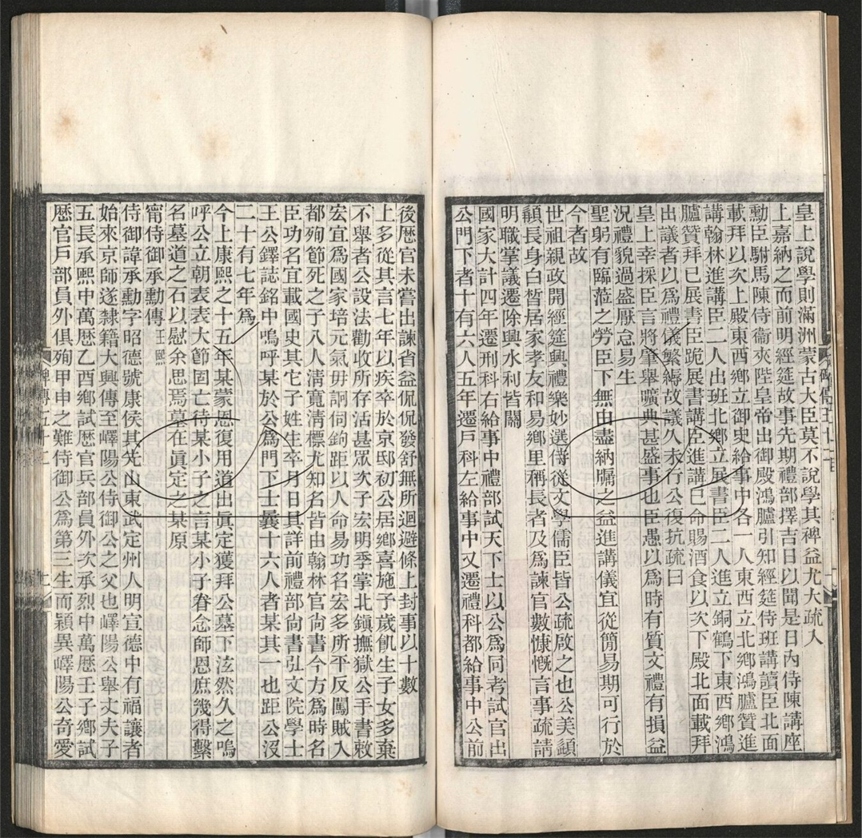 皇上說學則滿洲蒙古大臣莫不說學其裨益尤大疏入
上嘉納之而前明經筵故事先期禮部擇吉日以聞是日內侍陳講座
勳臣駙馬陳侍衞夾陛皇帝出御殿鴻臚引知經筵侍班講讀臣北面
載拜以次上殿東西鄉立御史給事中各一人東西立北鄉鴻臚贊進
講翰林進講臣二人出班北鄉立展書臣二人進立銅鶴下東西鄉鴻
臚贊拜已展書臣跪展書講臣進講已命賜酒食以次下殿北面載拜
出議者以爲禮儀繁縟故議久未行公復抗疏曰
皇上幸採臣言將肇舉曠典甚盛事也臣愚以爲時有質文禮有損益
況禮貌過盛厭怠易生
聖躬有臨蒞之勞臣下無由盡納牖之益進講儀宜從簡易期可行於
今者故
世祖親政開經筵興禮樂妙選侍從文學儒臣皆公疏啟之也公美鬚
顙長身白皙居家孝友和易鄉里稱長者及爲諫官數慷慨言事疏請
明職掌議遷除興水利皆關
國家大計四年遷刑科右給事中禮部試天下士以公爲同考試官出
公門下者十有六人五年遷戶科左給事中又遷禮科都給事中公前
後歷官未嘗出諫省益侃侃發舒無所迴避條上封事以十數
上多從其言七年以疾卒於京邸初公居鄉喜施子歲飢生子女多棄
不舉者公設法勸收所存活甚眾次子宏明季掌北鎮撫獄公手書敕
宏宜爲國家培元氣毋詗伺鉤距以人命易功名宏多所平反闖賊入
都殉節死之子入人清寬清標尤知名皆由翰林官尚書今方爲時名
臣功名宜載國史其它子姓生卒月日具詳前禮部尚書弘文院學士
王公鐸誌銘中嗚呼某於公爲門下士曩十六人者某其一也距公沒
二十有七年爲
今上康熙之十五年某蒙恩復用道出眞定獲拜公墓下泫然久之嗚
呼公立朝表表大節固亡待某小子之言某小子眷念師恩庶幾得繫
名墓道之石以慰余思焉墓在眞定之某原
甯侍御承勳傳 王熙
侍御諱承勳字昭德號康侯其先山東武定州人明宣德中有福讓者
始來京師遂隸籍大興傳至嶧陽公侍御公之父也嶧陽公舉丈夫子
五長承熙中萬厯乙酉鄉試歷官兵部員外次承烈中萬厯壬子鄉試
歷官戶部員外俱殉甲申之難侍御公爲第三生而穎異嶧陽公奇愛